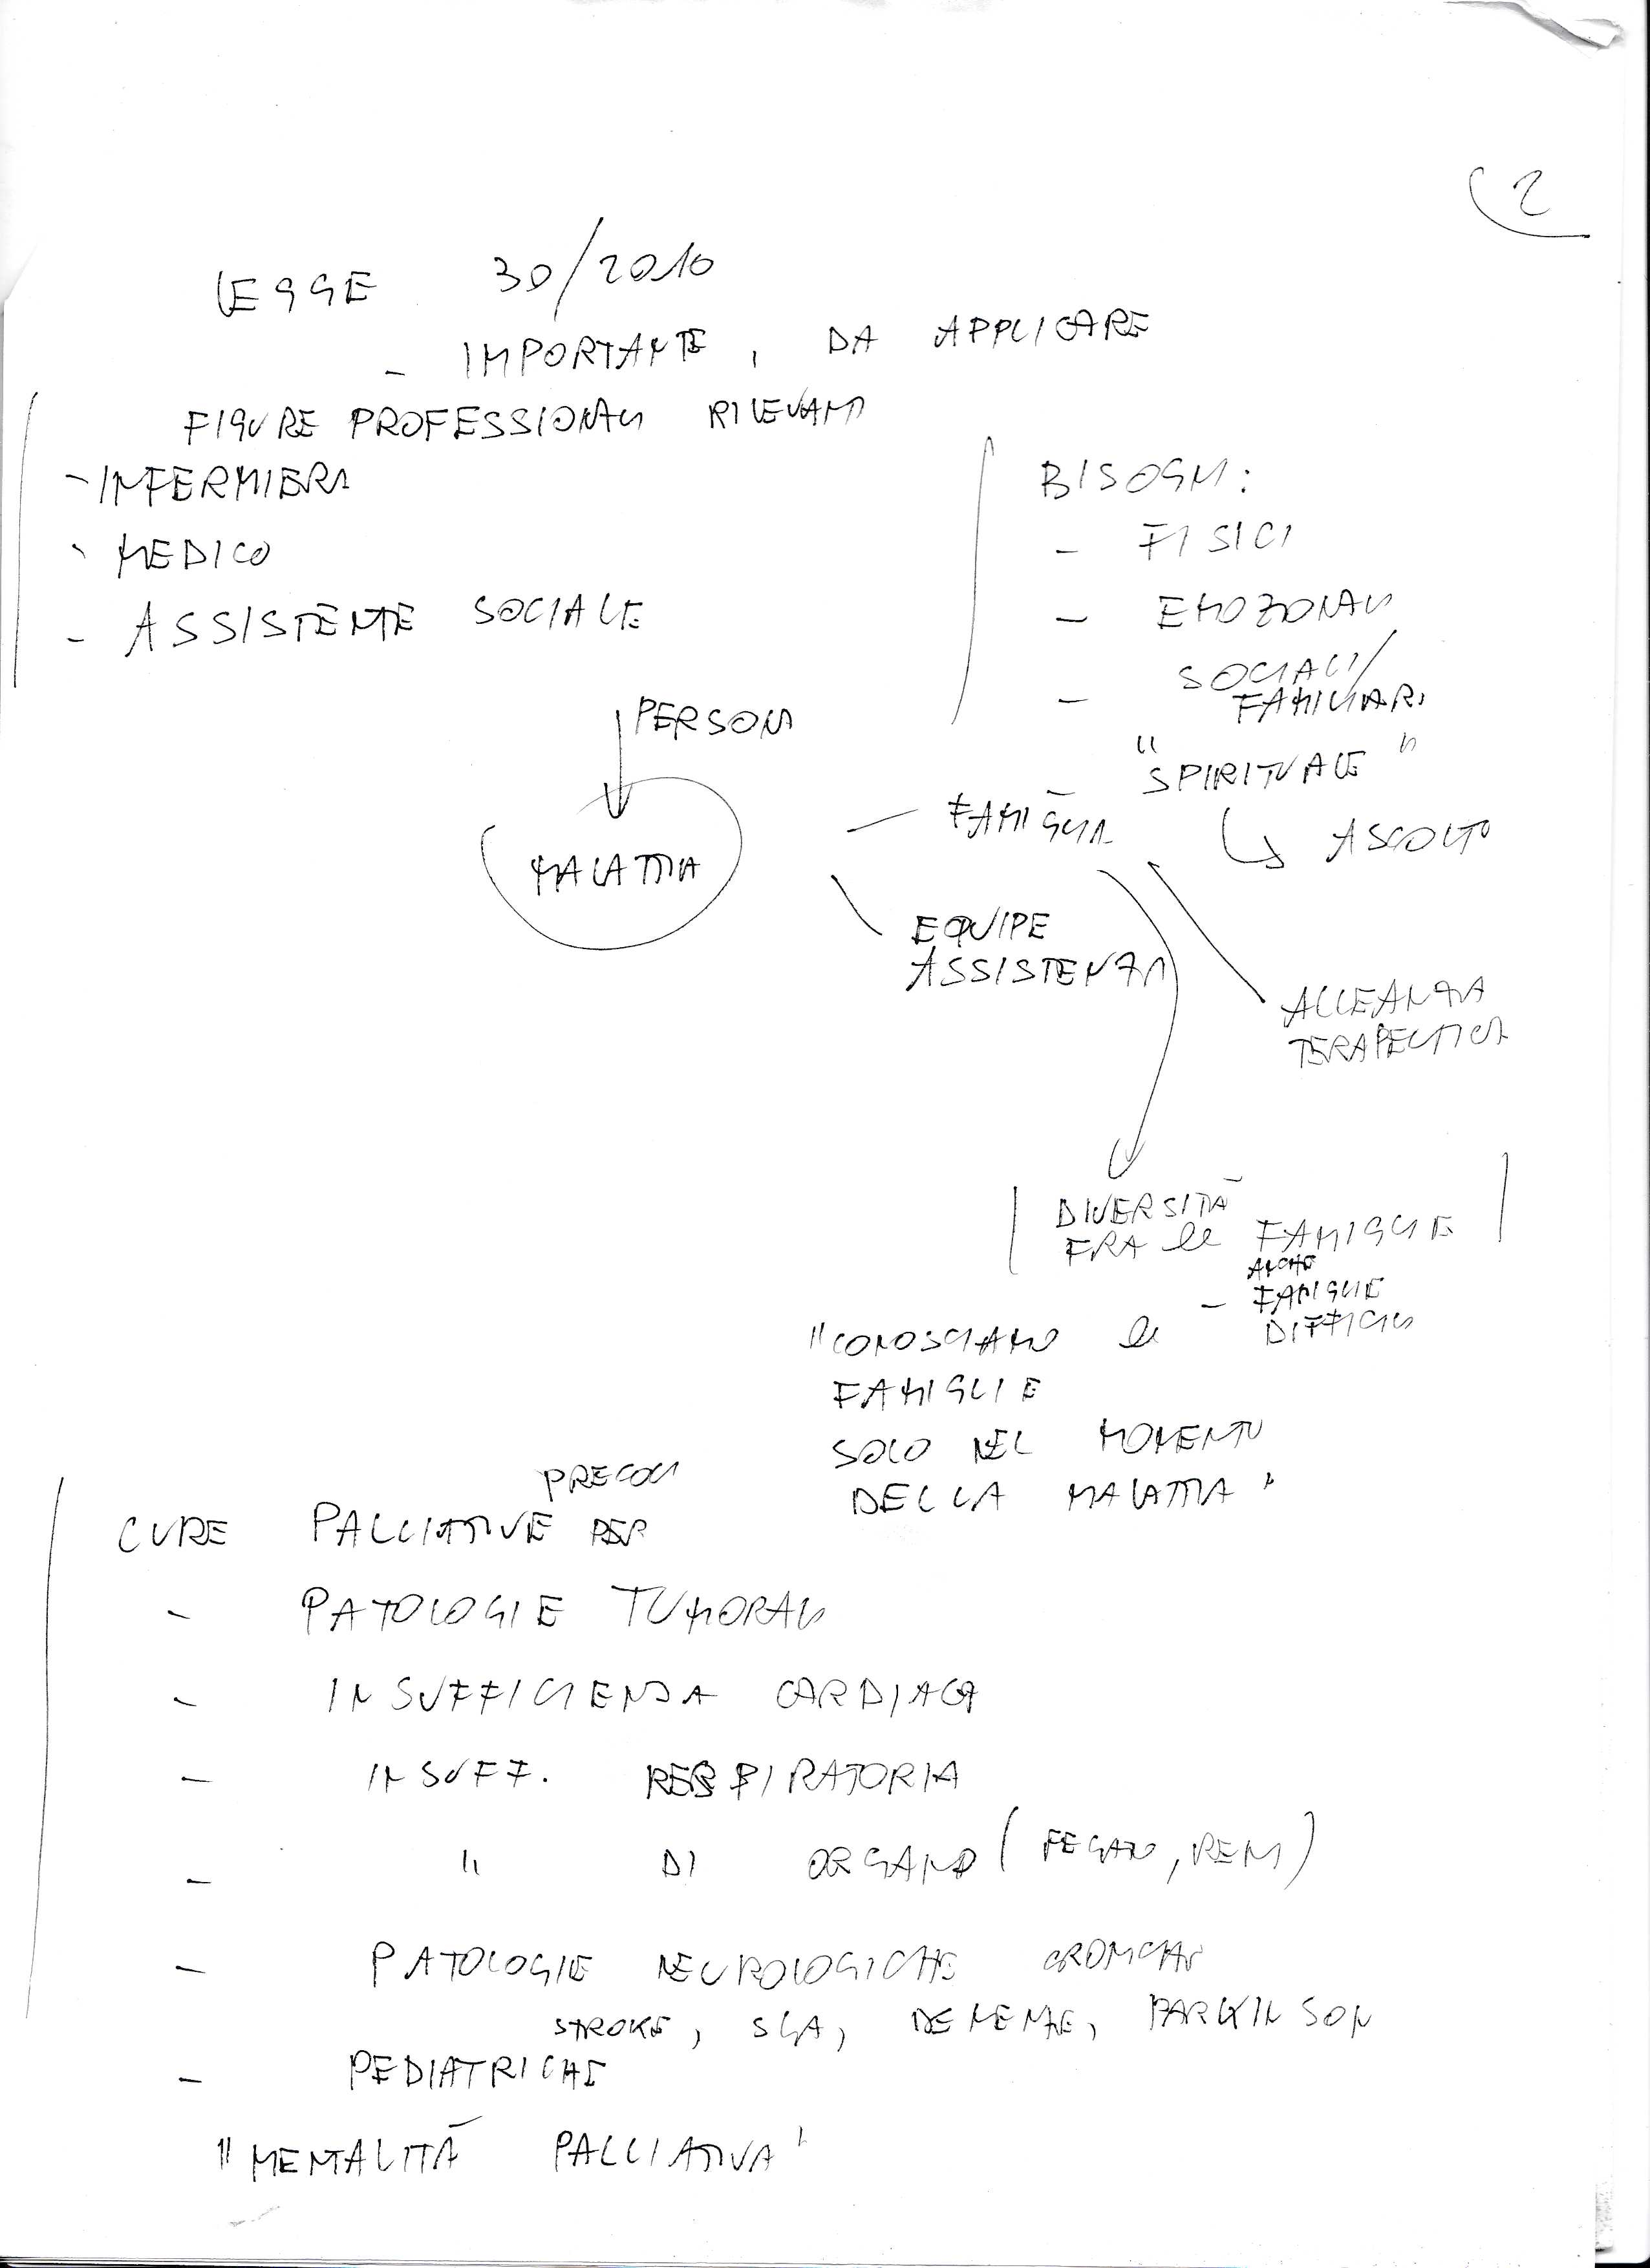 2
LEGGE 30/2010
- IMPORTANTE, DA APPLICARE
FIGURE PROFESSIONALI RILEVANTI
- INFERMIERA
- MEDICO
- ASSISTENTE SOCIALE
BISOGNI:
- FISICI
- EMOZIONALI
- SOCIALI/
FAMILIARI
- "SPIRITUALE"
ASCOLTO
PERSONA
MALATTIA
FAMIGLIA
EQUIPE
ASSISTENZA
ALLEANZA
TERAPEUTICA
DIVERSITÀ
FRA le FAMIGLIE
- ANCHE
FAMIGLIE
DIFFICILI
"CONOSCIAMO le
FAMIGLIE
SOLO NEL MOMENTO
DELLA MALATTIA"
PRECOCI
CURE PALLIATIVE PER
- PATOLOGIE TUMORALI
- INSUFFICIENZA CARDIACA
- INSUFF. RESPIRATORIA
- " DI ORGANO (FEGATO, RENI)
- PATOLOGIE NEUROLOGICHE
STROKE, SLA, DEMENZE, PARKINSON
- PEDIATRICHE
"MENTALITÀ PALLIATIVA"